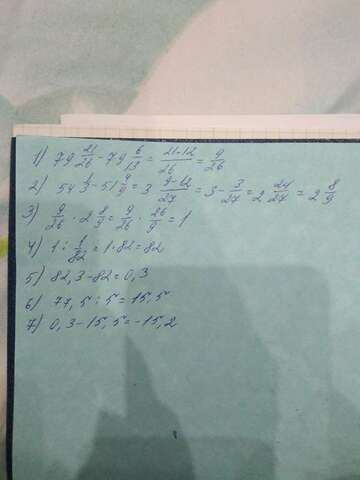 1) 79 21/26 - 79 6/13 = 21-12/26 = 9/26
2) 54 1/3 - 51 4/9 = 3 9-12/27 = 3 - 3/27 = 2 24/27 = 2 8/9
3) 9/26 · 2 8/9 = 9/26 · 26/9 = 1
4) 1 : 1/82 = 1·82 = 82
5) 82,3-82=0,3
6) 77,5:5=15,5
7) 0,3-15,5=-15,2